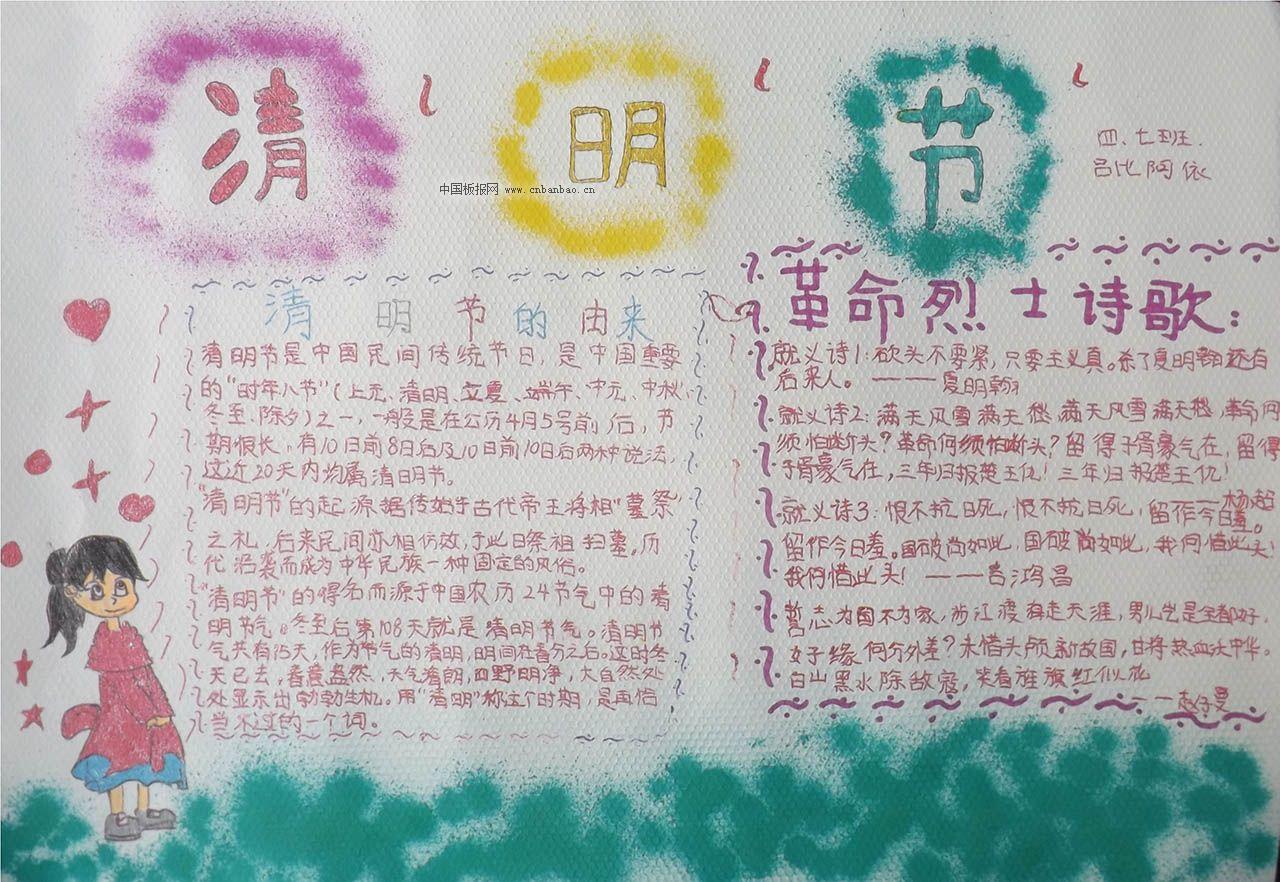 清明节
中国板报网 www.cnbanbao.cn
四、七班.
吕比陶依
清明节的由来
清明节是中国民间传统节日，是中国重要
的“时年八节”（上元、清明、立夏、端午、中元、中秋、
冬至、除夕）之一，一般是在公历4月5号前后，节
期很长，有10日前8日后及10日前10日后两种说法，
这近20天内均属清明节。
“清明节”的起源据传始于古代帝王将相“墓祭”
之礼，后来民间亦相仿效，于此日祭祖扫墓。历
代沿袭而成为中华民族一种固定的风俗。
“清明节”的得名而源于中国农历24节气中的清
明节气。冬至后第108天就是清明节气。清明节
气共有15天，作为节气的清明，时间在春分之后。这时冬
天已去，春意盎然，天气清朗，四野明净，大自然处
处显示出勃勃生机。用“清明”称这个时期，是再恰
当不过的一个词。
革命烈士诗歌：
就义诗1：砍头不要紧，只要主义真。杀了夏明翰还有
后来人。———夏明翰
就义诗2：满天风雪满天愁，满天风雪满天愁，革命何
须怕断头？革命何须怕断头？留得子胥豪气在，留得
子胥豪气在，三年归报楚王仇！三年归报楚王仇！
——杨超
就义诗3：恨不抗日死，恨不抗日死，留作今日羞。
留作今日羞。国破尚如此，国破尚如此，我何惜此头！
我何惜此头！———吉鸿昌
誓志为国不为家，涉江渡海走天涯，男儿岂是全都好，
女子缘何分外差？未惜头颅新故国，甘将热血沃中华。
白山黑水除敌寇，笑看旌旗红似花
——赵一曼